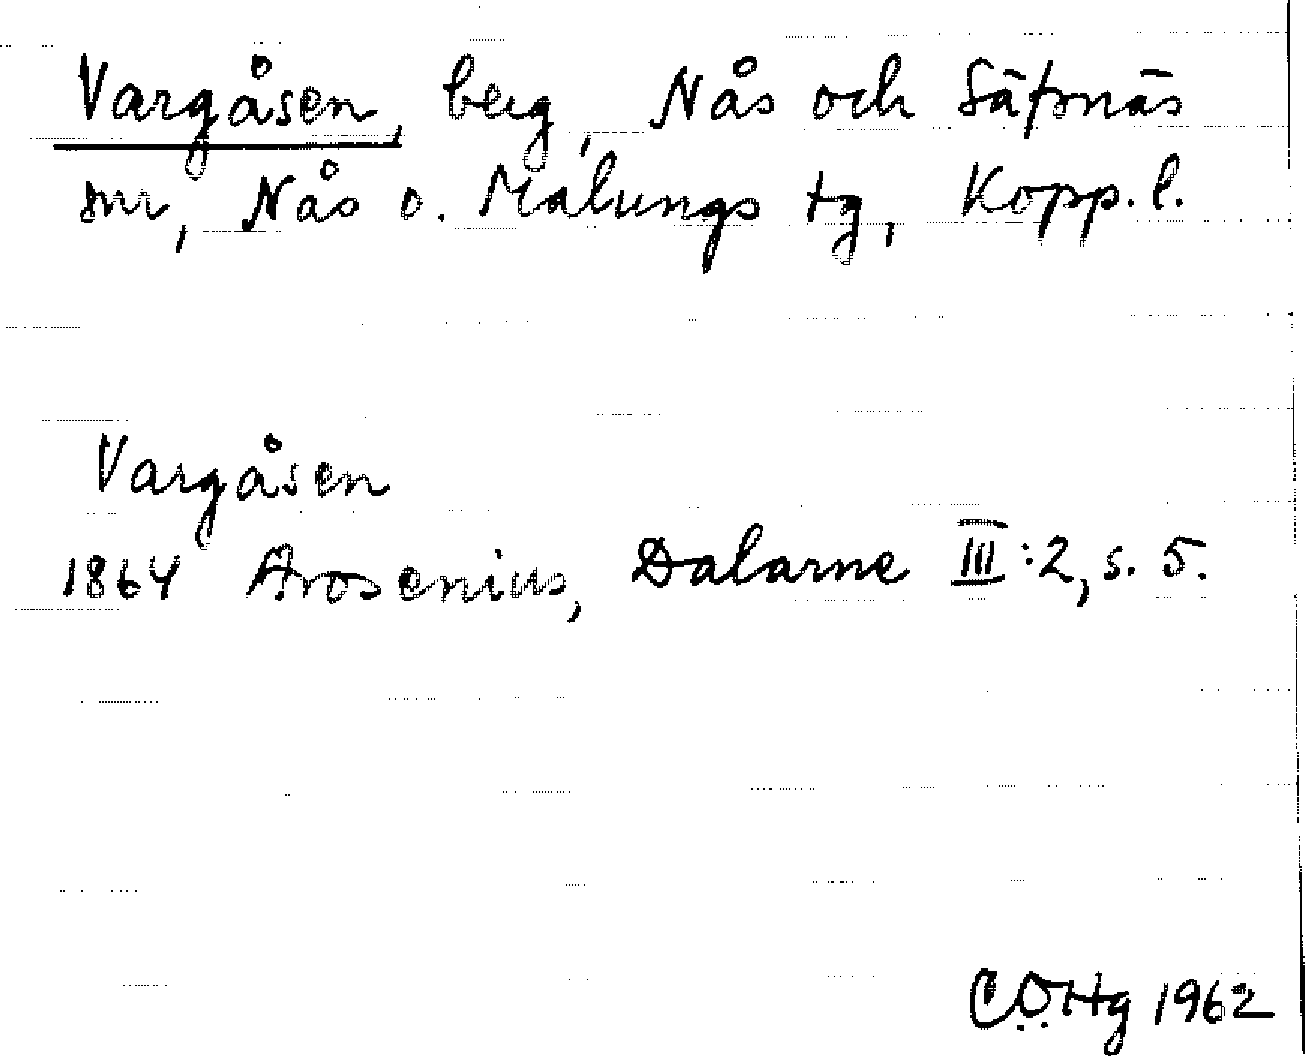 Vargåsen, berg, Nås och Säfsnäs
snr, Nås o. Malungs tg, Kopp. l.
Vargåsen
1864 Arosenius, Dalarne III:2, s. 5.
CÖHg 1962